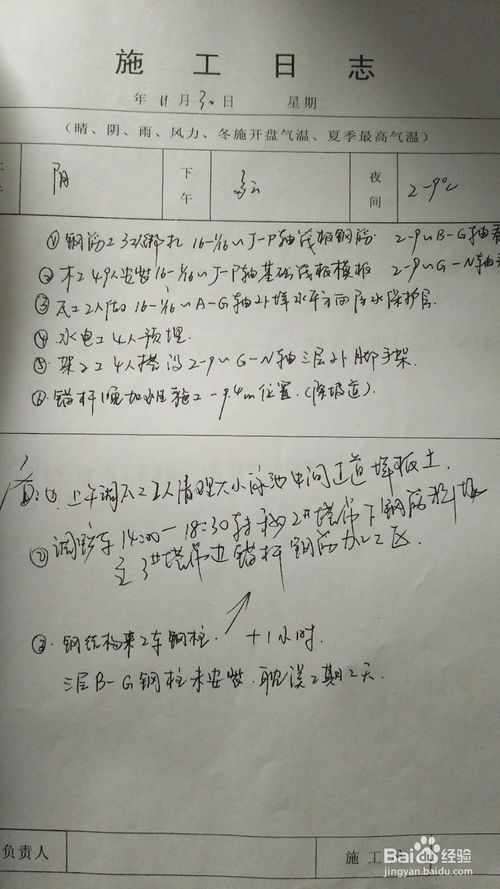 施工日志
年 11月30日 星期
(晴、阴、雨、风力、冬施开盘气温、夏季最高气温)
上午 阴 下午 多云 夜间 2-9℃
① 钢筋工32人绑扎 16-1/16~J-P轴筏板钢筋 2-9~B-G轴
② 木工49人安装16-1/16~J-P轴基础筏板模板 2-9~G-N轴
③ 瓦工2人做16-1/16~A-G轴外墙水平方向防水保护层
④ 水电工4人预埋.
⑤ 架子工4人搭设2-9~G-N轴三层外脚手架
⑥ 锚杆 施工-9.4m位置.(降坡道).
① 上午调瓦工2人清理大小泳池中间过道 土.
② 调 车14:00-18:30转移2#塔吊下钢筋
至3#塔吊边锚杆钢筋加工区.
③ 钢结构来2车钢柱. +1小时.
三层B-G钢柱未安装.耽误工期2天.
负责人 施工
Bai 经验
jingyan.baidu.com